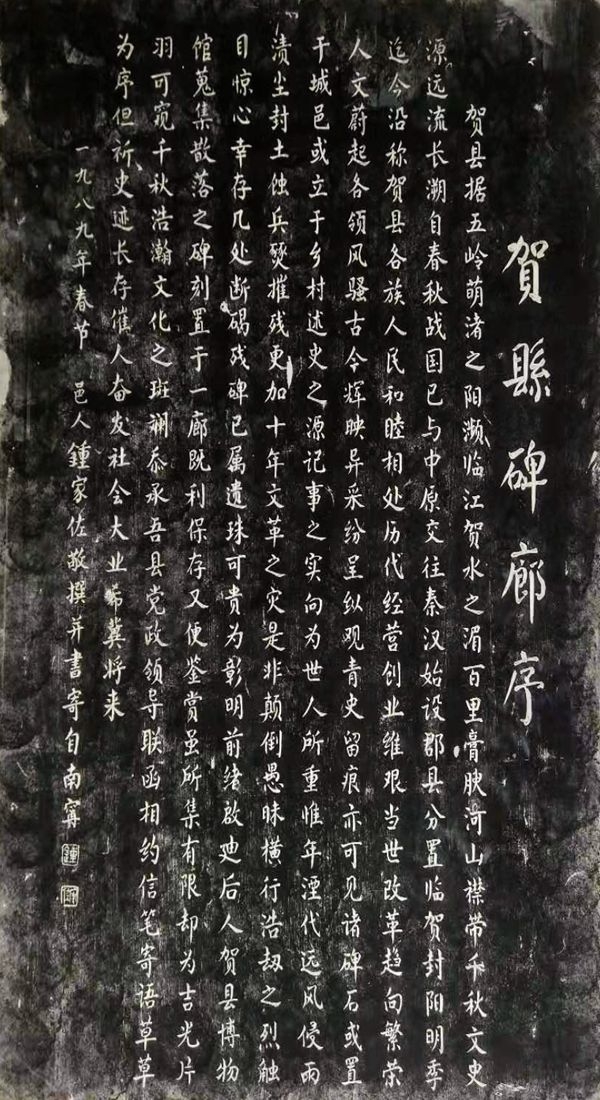 賀縣碑廊序
贺县据五岭萌渚之阳濒临江贺水之湄百里膏腴河山襟带千秋文史
源远流长溯自春秋战国已与中原交往秦汉始设郡县分置临贺封阳明季
迄今沿称贺县各族人民和睦相处历代经营创业维艰当世改革趋向繁荣
人文蔚起各领风骚古今辉映异采纷呈纵观青史留痕亦可见诸碑石或置
于城邑或立于乡村述史之源记事之实向为世人所重惟年湮代远风侵雨
渍尘封土蚀兵燹摧残更加十年文革之灾是非颠倒愚昧横行浩劫之烈触
目惊心幸存几处断碣残碑已属遗珠可贵为彰明前绪啟廸后人贺县博物
馆蒐集散落之碑刻置于一廊既利保存又便鉴赏虽所集有限却为吉光片
羽可窥千秋浩瀚文化之斑斓忝承吾县党政领导联函相约信笔寄语草草
为序但祈史迹长存催人奋发社会大业希冀将来
一九八九年春节 邑人鍾家佐敬撰并書寄自南寧